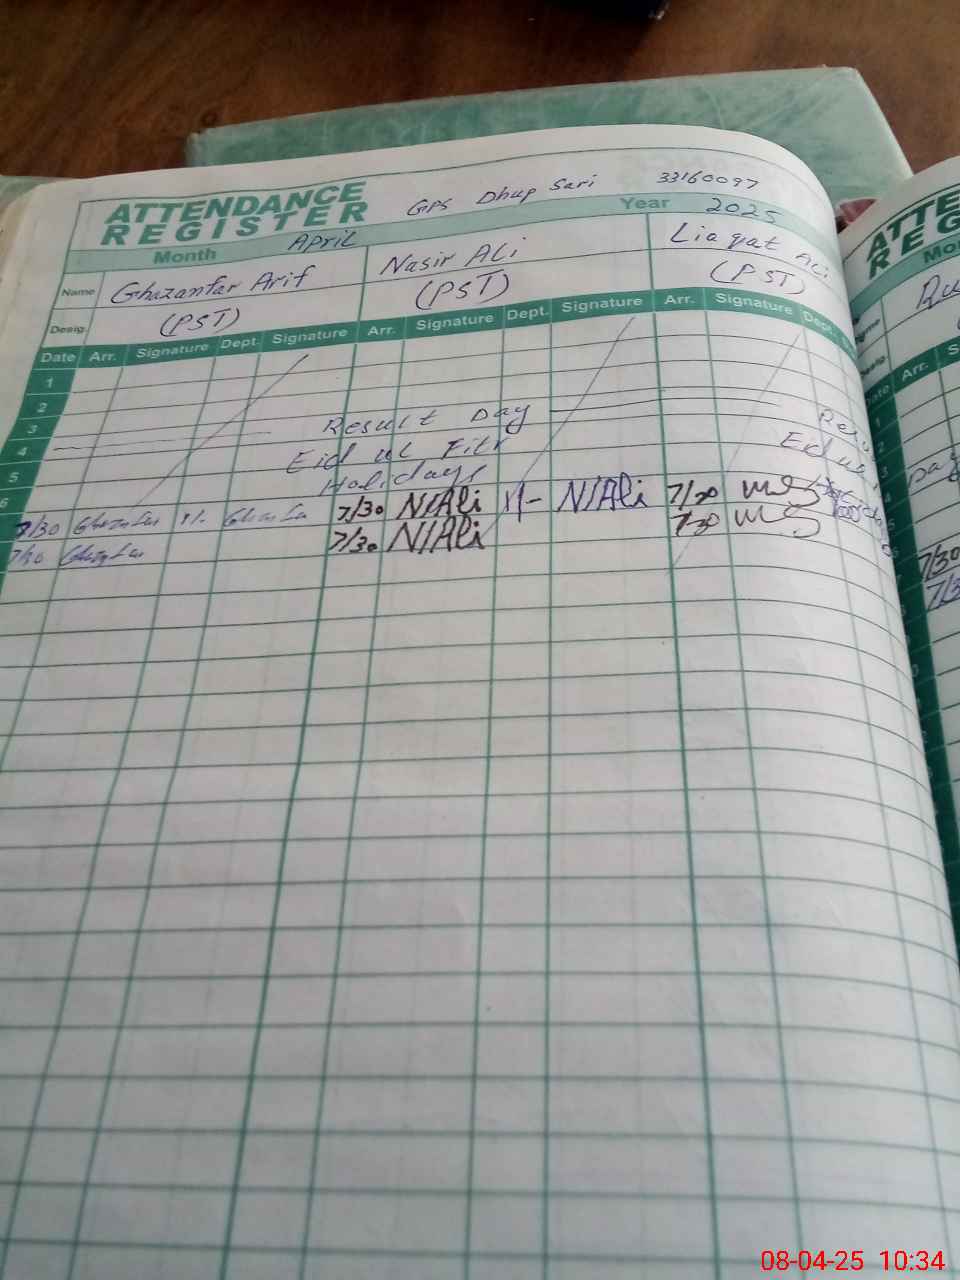 ATTENDANCE REGISTER GPS Dhup Sari 33160097
Month April Year 2025
Name Ghazanfar Arif Nasir ALi Liaqat ALi
Desig. (PST) (PST) (PST)
Date Arr. Signature Dept. Signature Arr. Signature Dept. Signature Arr. Signature Dept.
1
2
3 Result Day
4 Eid ul Fitr
5 Holidays
6
7/30 Ghazanfar 1/- Ghazanfar 7/30 N/Ali 1/- N/Ali 7/30
7/30 Ghazanfar 7/30 N/Ali 7/30
ATTE
REG
Mo
Arr.
7/30
7/3
08-04-25 10:34